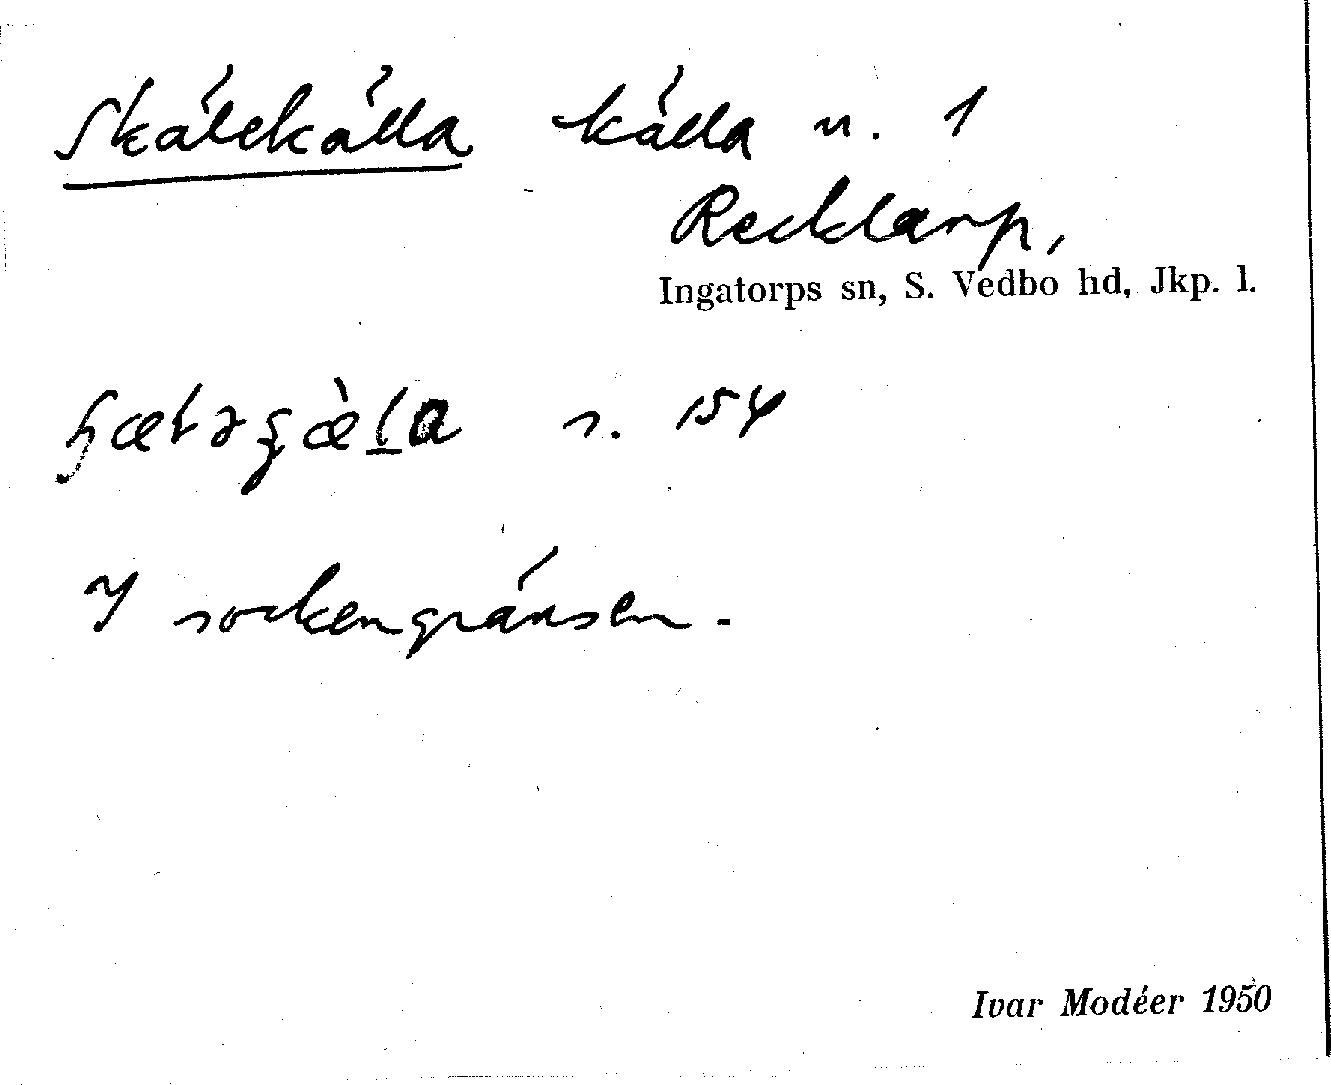 Skälekälla källa n. 1
Recklarp,
Ingatorps sn, S. Vedbo hd, Jkp. l.
s. 154
I sockengränsen.
Ivar Modéer 1950